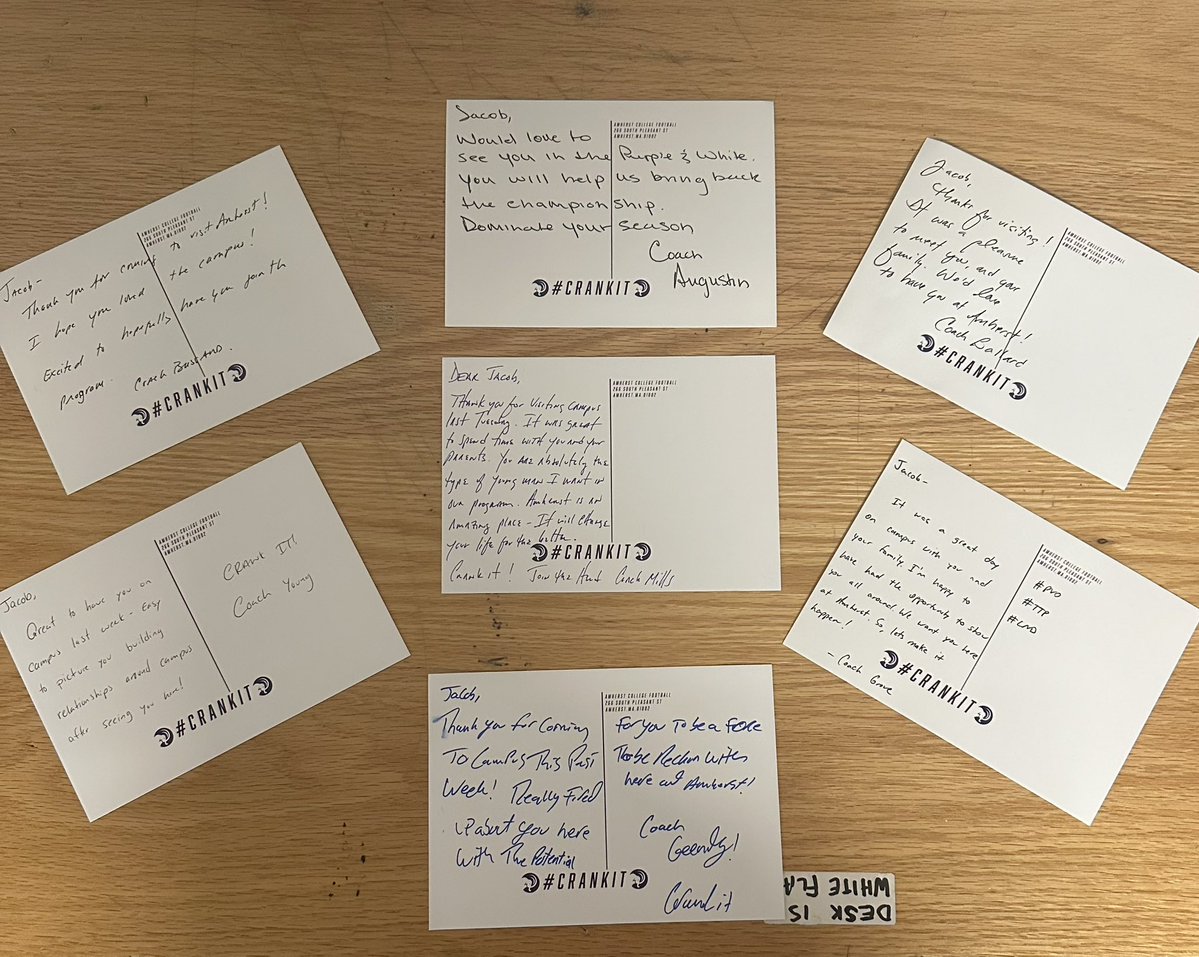 Jacob-
Thank you for coming to visit Amherst!
I hope you loved the campus!
Excited to hopefully have you join the
program. Coach
AMHERST COLLEGE FOOTBALL
266 SOUTH PLEASANT ST
AMHERST, MA 01002
#CRANKIT
Jacob,
Would love to
see you in the Purple & White.
You will help us bring back
the championship.
Dominate your season
Coach
Augustin
AMHERST COLLEGE FOOTBALL
266 SOUTH PLEASANT ST
AMHERST, MA 01002
#CRANKIT
Jacob,
thanks for visiting!
It was a pleasure
to meet you, and your
family. We'd love
to have you at Amherst!
Coach Ballard
AMHERST COLLEGE FOOTBALL
266 SOUTH PLEASANT ST
AMHERST, MA 01002
#CRANKIT
Jacob,
Great to have you on
campus last week - Easy
to picture you building
relationships around campus
after seeing you here!
AMHERST COLLEGE FOOTBALL
266 SOUTH PLEASANT ST
AMHERST, MA 01002
CRANK IT!
Coach Young
#CRANKIT
Dear Jacob,
Thank you for visiting campus
last Tuesday. It was great
to spend time with you and your
parents. You are absolutely the
type of young man I want in
our program. Amherst is an
amazing place - It will change
your life for the better.
Crank it! Join the Herd Coach Mills
AMHERST COLLEGE FOOTBALL
266 SOUTH PLEASANT ST
AMHERST, MA 01002
#CRANKIT
Jacob-
It was a great day
on campus with you and
your family. I'm happy to
have had the opportunity to show
you all around. We want you here
at Amherst. So, lets make it
happen!
- Coach Grove
AMHERST COLLEGE FOOTBALL
266 SOUTH PLEASANT ST
AMHERST, MA 01002
#PVO
#TTP
#LND
#CRANKIT
Jacob,
Thank you for Coming
To Campus This Past
Week! Really Fired
up about you here
With The Potential
AMHERST COLLEGE FOOTBALL
266 SOUTH PLEASANT ST
AMHERST, MA 01002
For you To be a Force
To be Reckon With
here at Amherst!
Coach
Crank it
#CRANKIT
DESK IS
WHITE FLA